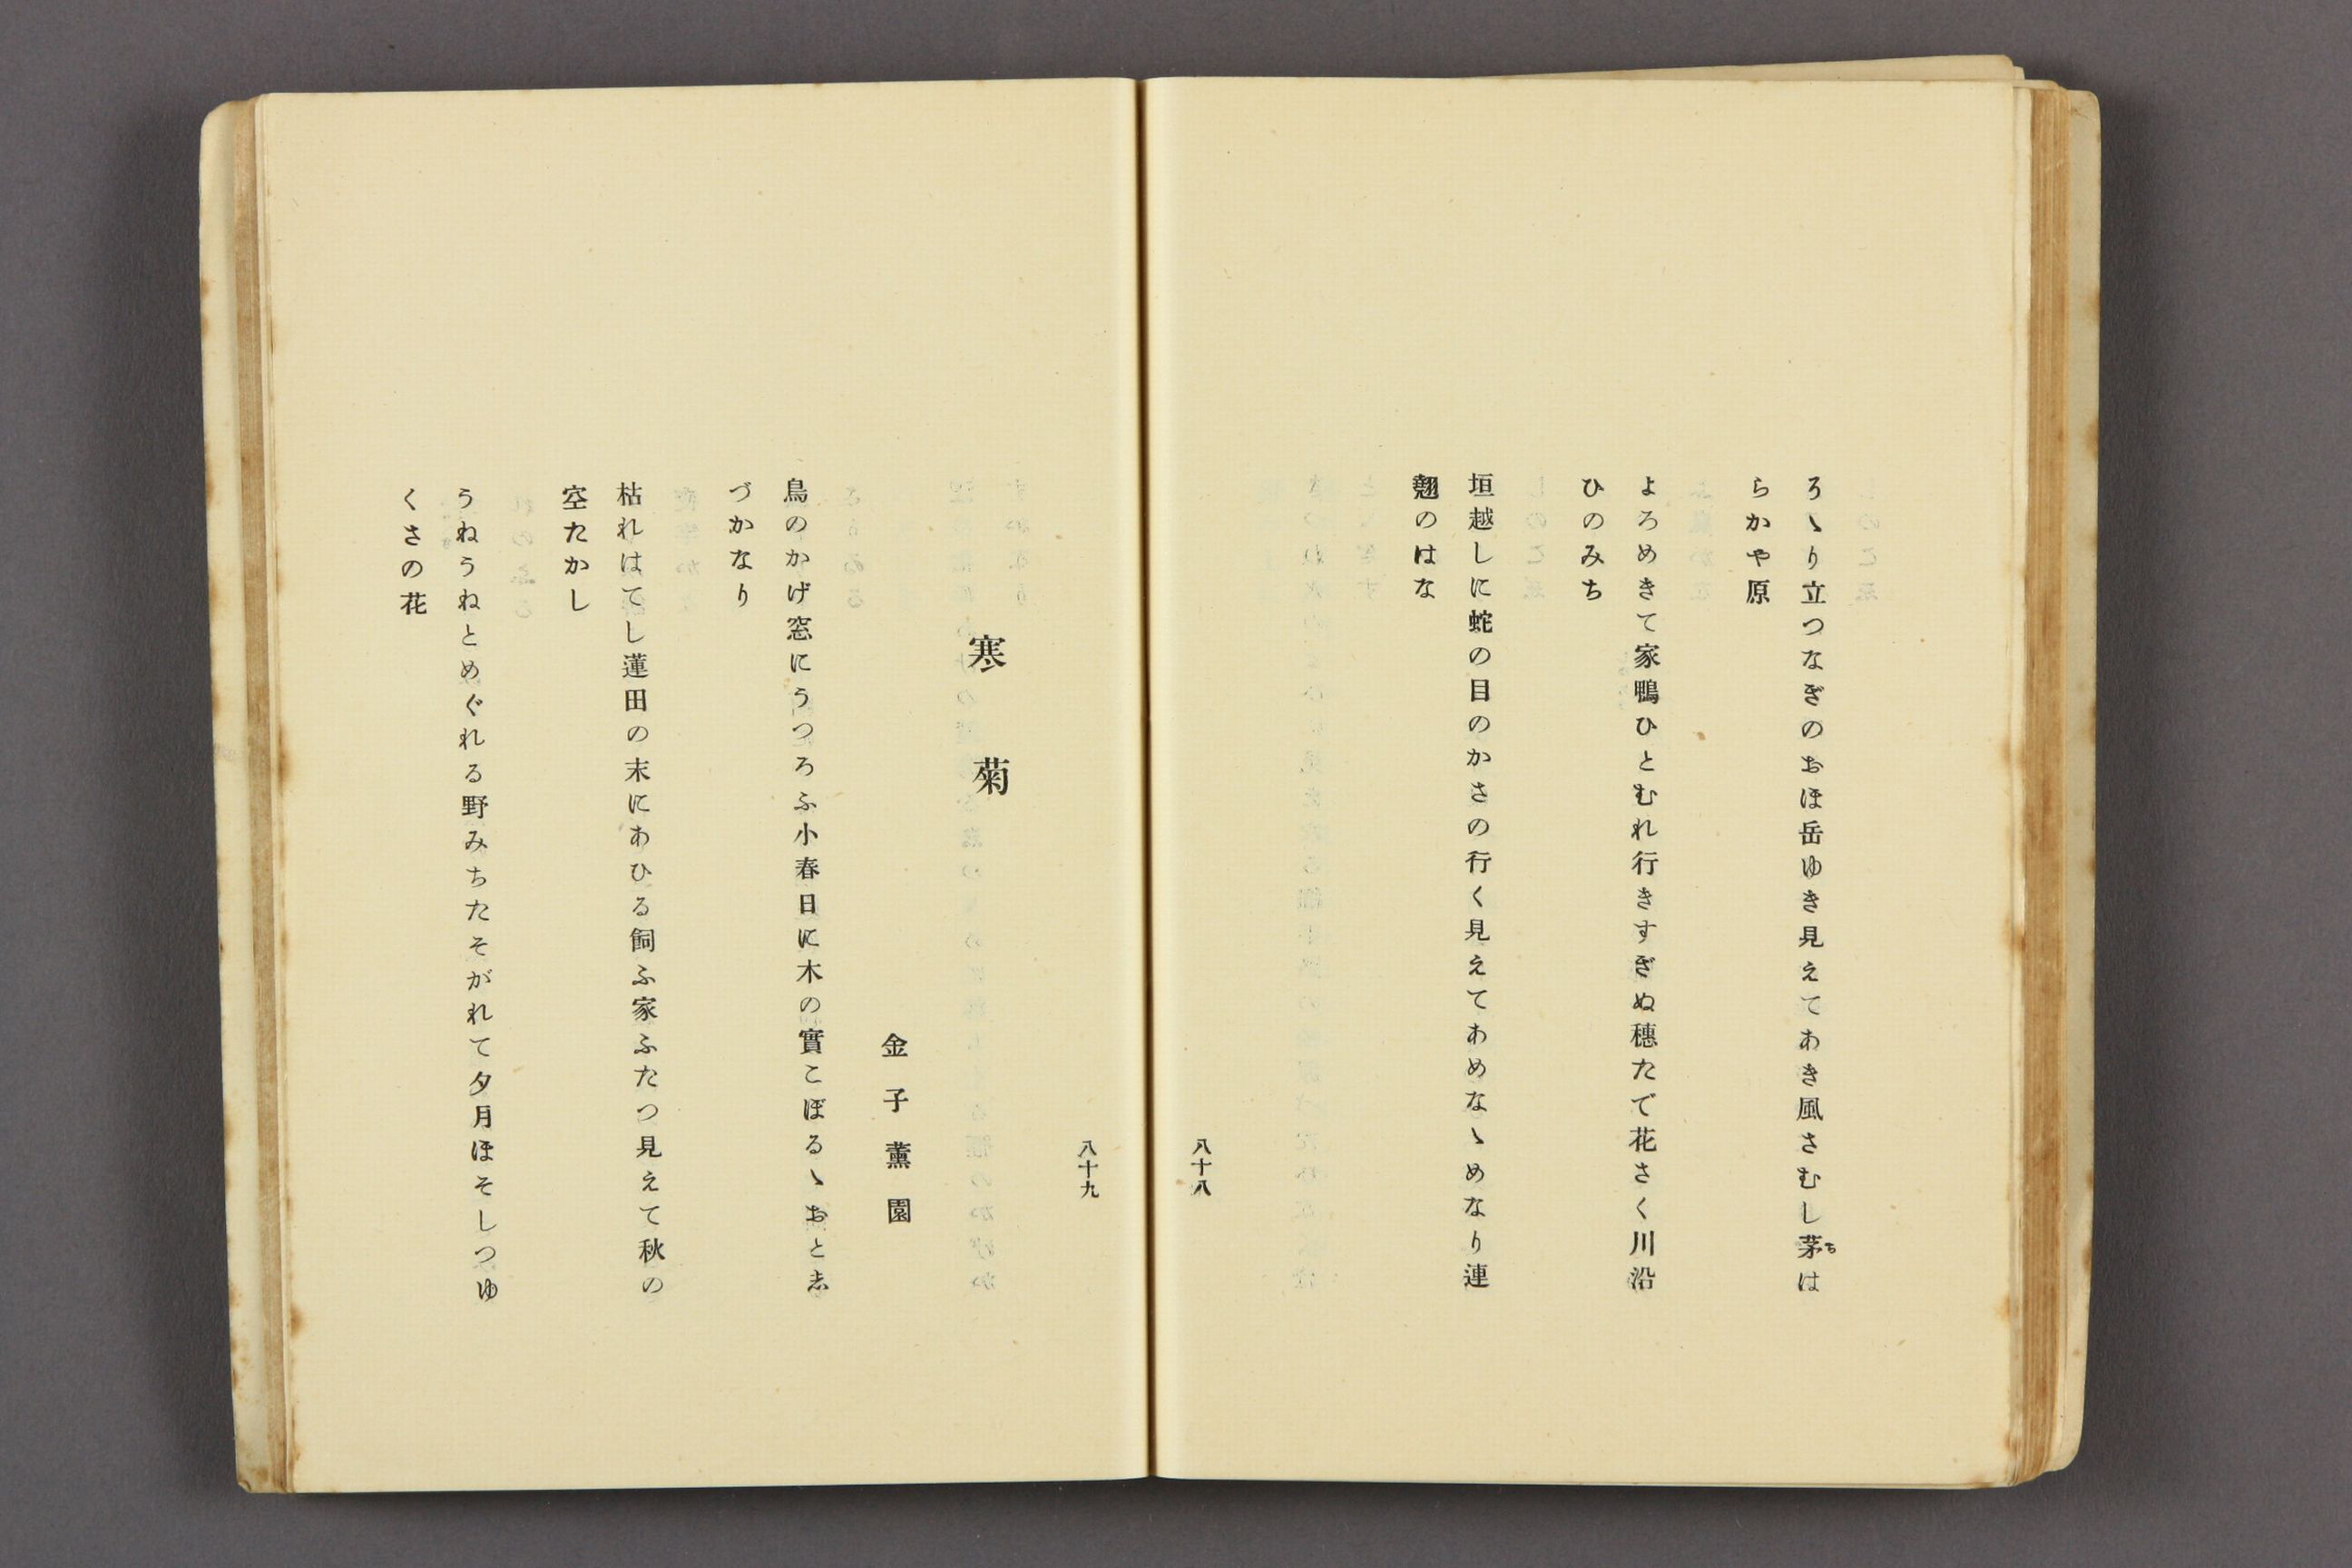 ろゝり立つなぎのおほ岳ゆき見えてあき風さむし茅は
ち
らかや原
よろめきて家鴨ひとむれ行きすぎぬ穗たで花さく川沿
ひのみち
垣越しに蛇の目のかさの行く見えてあめなゝめなり連
翹のはな
八十八
八十九
寒菊
金子薫園
鳥のかげ窓にうつろふ小春日に木の實こぼるゝおと志
づかなり
枯れはてし蓮田の末にあひる飼ふ家ふたつ見えて秋の
空たかし
うねうねとめぐれる野みちたそがれて夕月ほそしつゆ
くさの花